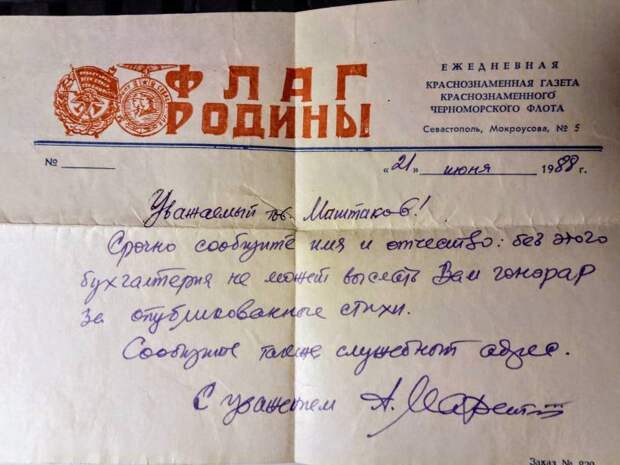 ФЛАГ
РОДИНЫ
ЕЖЕДНЕВНАЯ
КРАСНОЗНАМЕННАЯ ГАЗЕТА
КРАСНОЗНАМЕННОГО
ЧЕРНОМОРСКОГО ФЛОТА
Севастополь, Мокроусова, № 5
№
«21» июня 1988 г.
Уважаемый тов. Маштаков!
Срочно сообщите имя и отчество: без этого
бухгалтерия не может выслать Вам гонорар
за опубликованные стихи.
Сообщите также служебный адрес.
С уважением А.
Заказ №